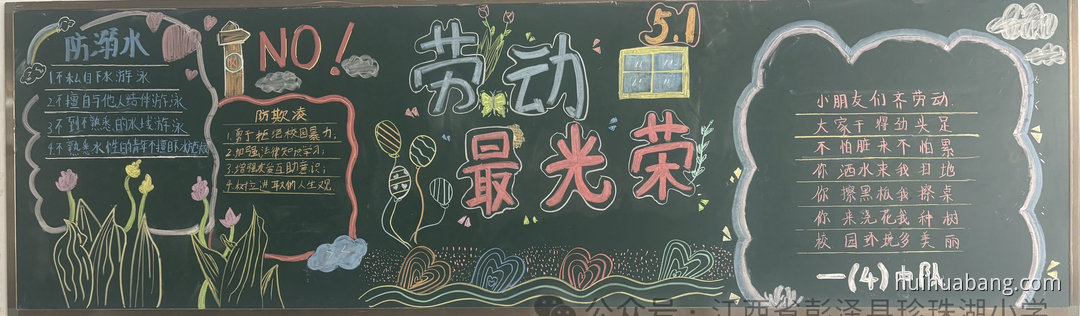 防溺水
1.不私自下水游泳
2.不擅自与他人结伴游泳
3.不到不熟悉的水域游泳
4.不熟悉水性的情
NO!
防欺凌
1.勇于拒绝校园暴力.
2.加强法律知识学习;
3.增强安全互助意识;
4.树立进取的人生观
劳动
最光荣
5.1
小朋友们齐劳动.
大家干得劲头足
不怕脏来不怕累
你洒水来我扫地
你擦黑板我擦桌
你来浇花我种树
校园环境多美丽
一(4)中队
huihuabang.com
公众号:江西省彭泽县珍珠湖小学